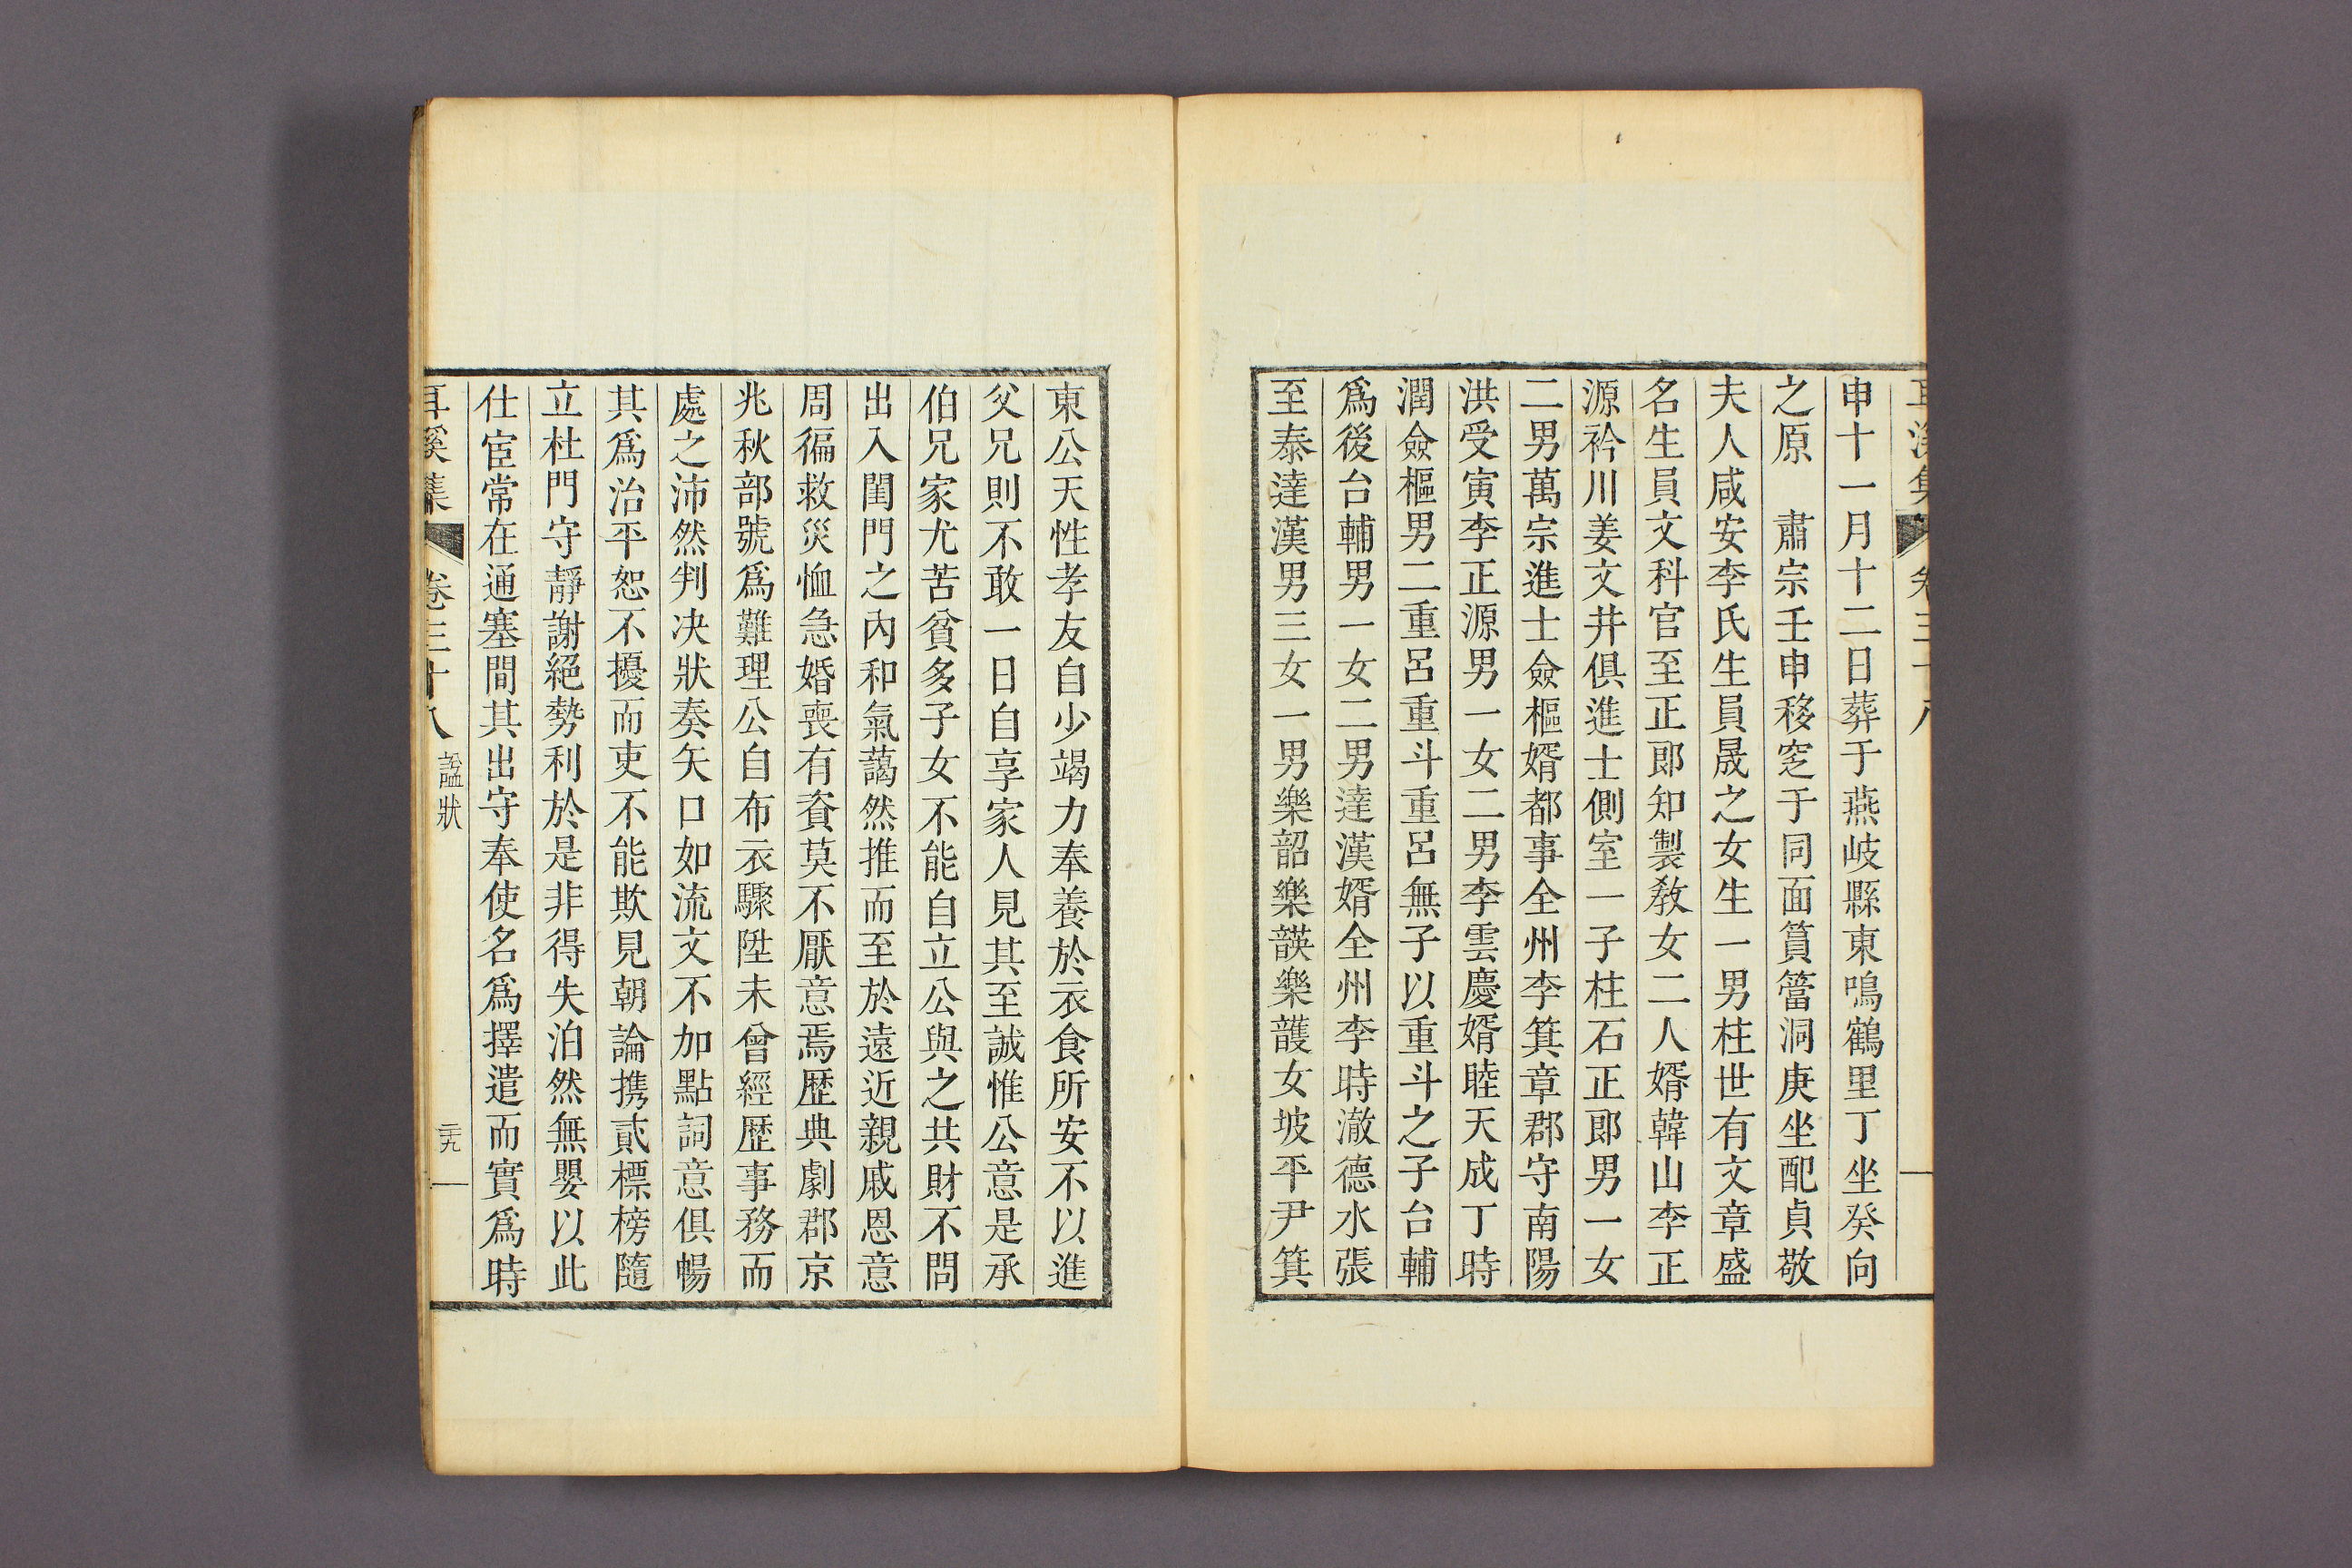 申十一月十二日葬于燕岐縣東鳴鶴里丁坐癸向
之原　肅宗壬申移窆于同面篔簹洞庚坐配貞敬
夫人咸安李氏生員晟之女生一男柱世有文章盛
名生員文科官至正郎知製敎女二人婿韓山李正
源衿川姜文井俱進士側室一子柱石正郎男一女
二男萬宗進士僉樞婿都事全州李箕章郡守南陽
洪受寅李正源男一女二男李雲慶婿睦天成丁時
潤僉樞男二重呂重斗重呂無子以重斗之子台輔
爲後台輔男一女二男達漢婿全州李時澈德水張
至泰達漢男三女一男樂韶樂韺樂頀女坡平尹箕
東公天性孝友自少竭力奉養於衣食所安不以進
父兄則不敢一日自享家人見其至誠惟公意是承
伯兄家尤苦貧多子女不能自立公與之共財不問
出入閨門之內和氣藹然推而至於遠近親戚恩意
周徧救災恤急婚喪有資莫不厭意焉歷典劇郡京
兆秋部號爲難理公自布衣驟陞未曾經歷事務而
處之沛然判决狀奏矢口如流文不加點詞意俱暢
其爲治平恕不擾而吏不能欺見朝論携貳標榜隨
立杜門守靜謝絕勢利於是非得失泊然無嬰以此
仕宦常在通塞間其出守奉使名爲擇遣而實爲時
耳溪集　卷三十八　諡狀　三九